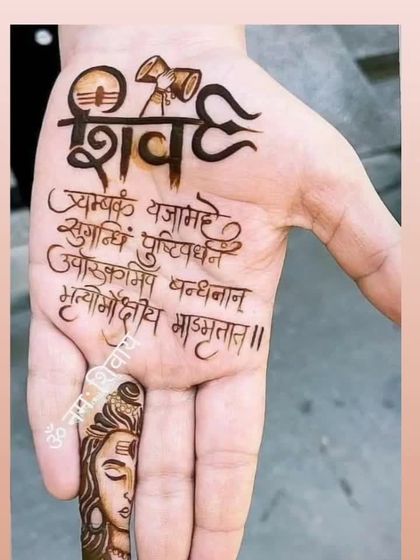 शिव
त्र्यम्बकं यजामहे
सुगन्धिं पुष्टिवर्धनं
बन्धनान्
मृत्योर्मोक्षीय माऽमृतात् ॥
ॐ नमः शिवाय